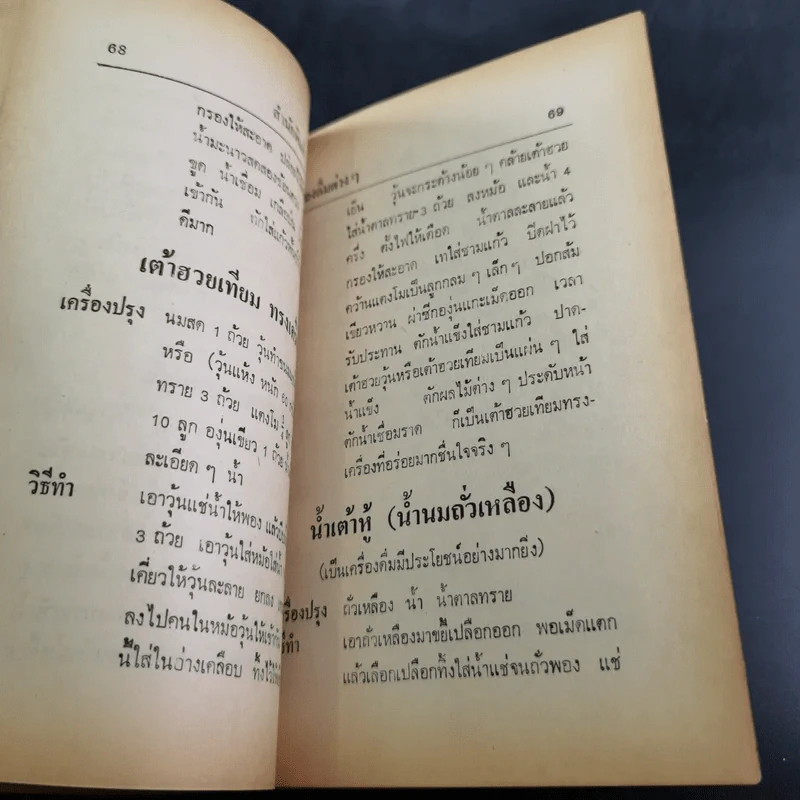 68
กรองให้สะอาด
น้ำมะนาวสดสองช้อน
ขูด น้ำเชื่อม
เข้ากัน ตักใส่แก้ว
ดีมาก
เต้าฮวยเทียม ทรงเครื่
เครื่องปรุง นมสด 1 ถ้วย วุ้นทำขนม
หรือ (วุ้นแห้ง หนัก 60
ทราย 3 ถ้วย แตงโม
10 ลูก องุ่นเขียว 1 ถ้วย
ละเอียด ๆ น้ำ
วิธีทำ เอาวุ้นแช่น้ำให้พอง แล้ว
3 ถ้วย เอาวุ้นใส่หม้อใส่น้ำ
เคี่ยวให้วุ้นละลาย ยกลง
ลงไปคนในหม้อวุ้นให้เข้ากัน
นี้ใส่ในอ่างเคลือบ ทิ้งไว้ให้
69
องดื่มต่าง ๆ
เย็น วุ้นจะกระด้างน้อย ๆ คล้ายเต้าฮวย
ใส่น้ำตาลทราย 3 ถ้วย ลงหม้อ และน้ำ 4
ครึ่ง ตั้งไฟให้เดือด น้ำตาลละลายแล้ว
กรองให้สะอาด เทใส่ชามแก้ว ปิดฝาไว้
คว้านแตงโมเป็นลูกกลม ๆ เล็ก ๆ ปอกส้ม
เขียวหวาน ผ่าซีกองุ่นแกะเม็ดออก เวลา
รับประทาน ตักน้ำแข็งใส่ชามแก้ว ปาด-
เต้าฮวยวุ้นหรือเต้าฮวยเทียมเป็นแผ่น ๆ ใส่
น้ำแข็ง ตักผลไม้ต่าง ๆ ประดับหน้า
ตักน้ำเชื่อมราด ก็เป็นเต้าฮวยเทียมทรง-
เครื่องที่อร่อยมากชื่นใจจริง ๆ
น้ำเต้าหู้ (น้ำนมถั่วเหลือง)
(เป็นเครื่องดื่มมีประโยชน์อย่างมากยิ่ง)
รื่องปรุง ถั่วเหลือง น้ำ น้ำตาลทราย
ธีทำ เอาถั่วเหลืองมาขยี้เปลือกออก พอเม็ดแตก
แล้วเลือกเปลือกทิ้งใส่น้ำแช่จนถั่วพอง แช่